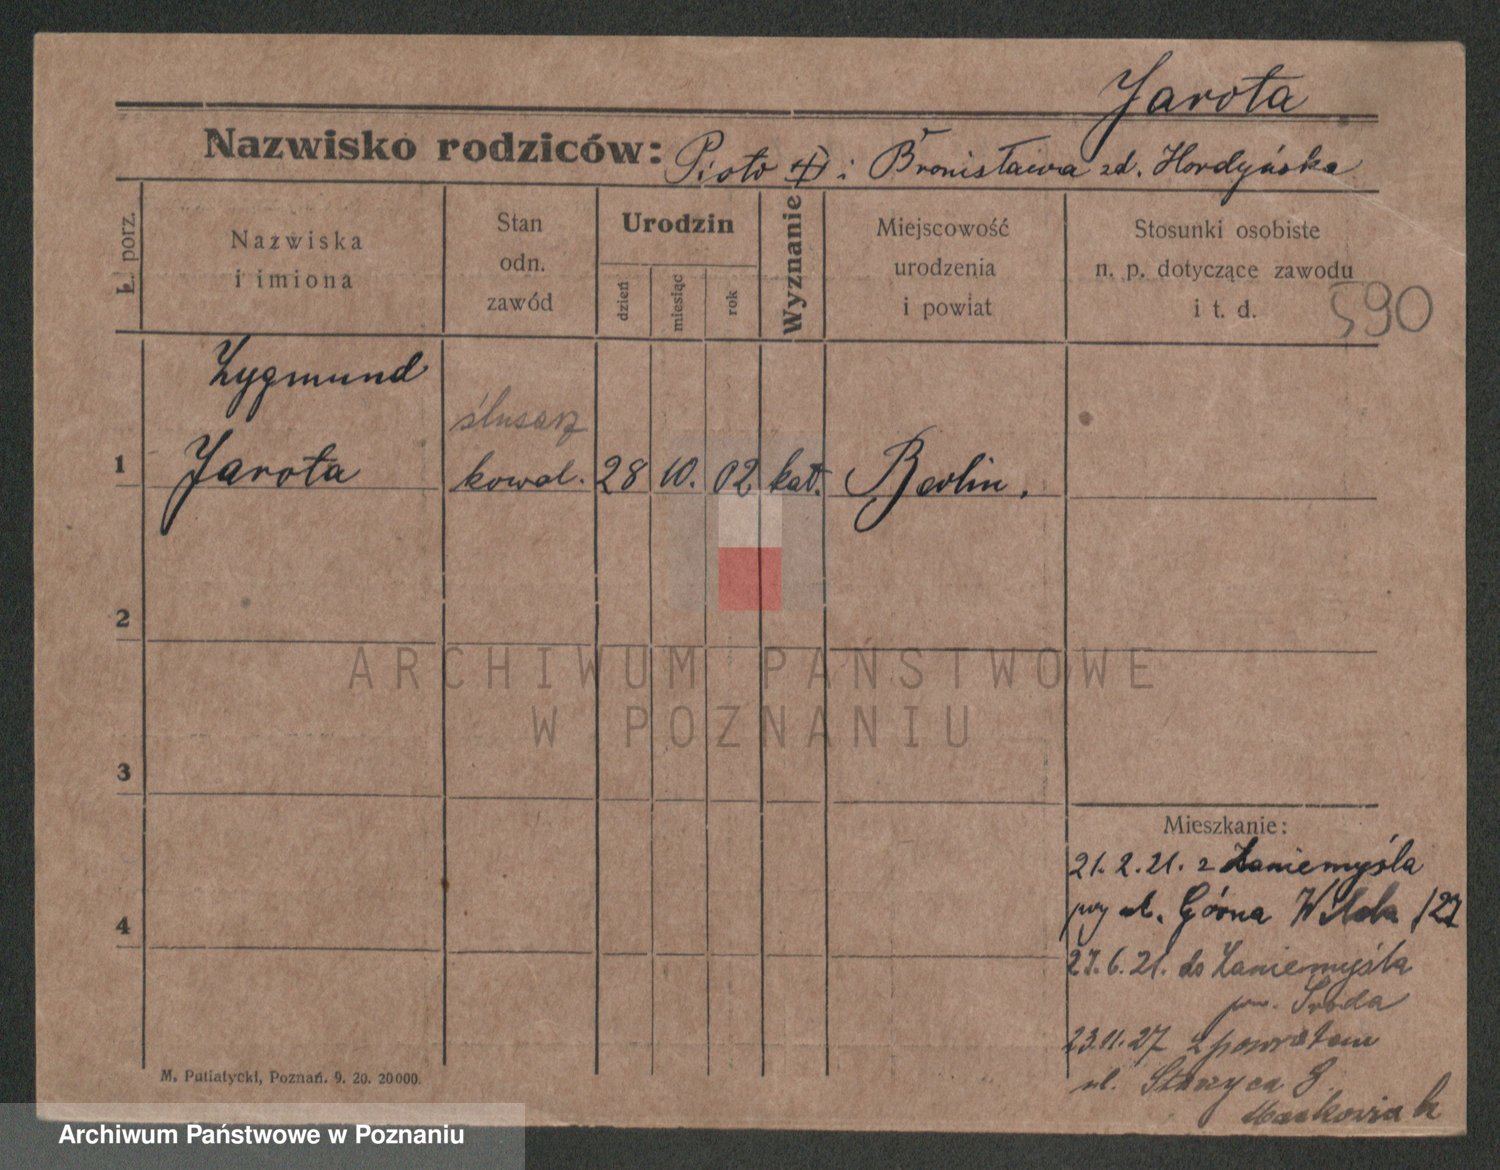 Jarota
Nazwisko rodziców: Piotr i Bronisława zd. Hordyńska
Ł. porz.
Nazwiska
i imiona
Stan
odn.
zawód
Urodzin
dzień
miesiąc
rok
Wyznanie
Miejscowość
urodzenia
i powiat
Stosunki osobiste
n. p. dotyczące zawodu
i t. d.
590
Zygmund
ślusarz
1 Jarota kowal. 28 10. 02 kat. Berlin.
2
3
4
Mieszkanie:
21. 2. 21. z Zaniemyśla
przy ul. Górna Wilda 127
27. 6. 21. do Zaniemyśla
pow. Środa
23.11.27 z powrotem
ul. 8
M. Putiatycki, Poznań. 9. 20. 20000.
ARCHIWUM PAŃSTWOWE
W POZNANIU
Archiwum Państwowe w Poznaniu